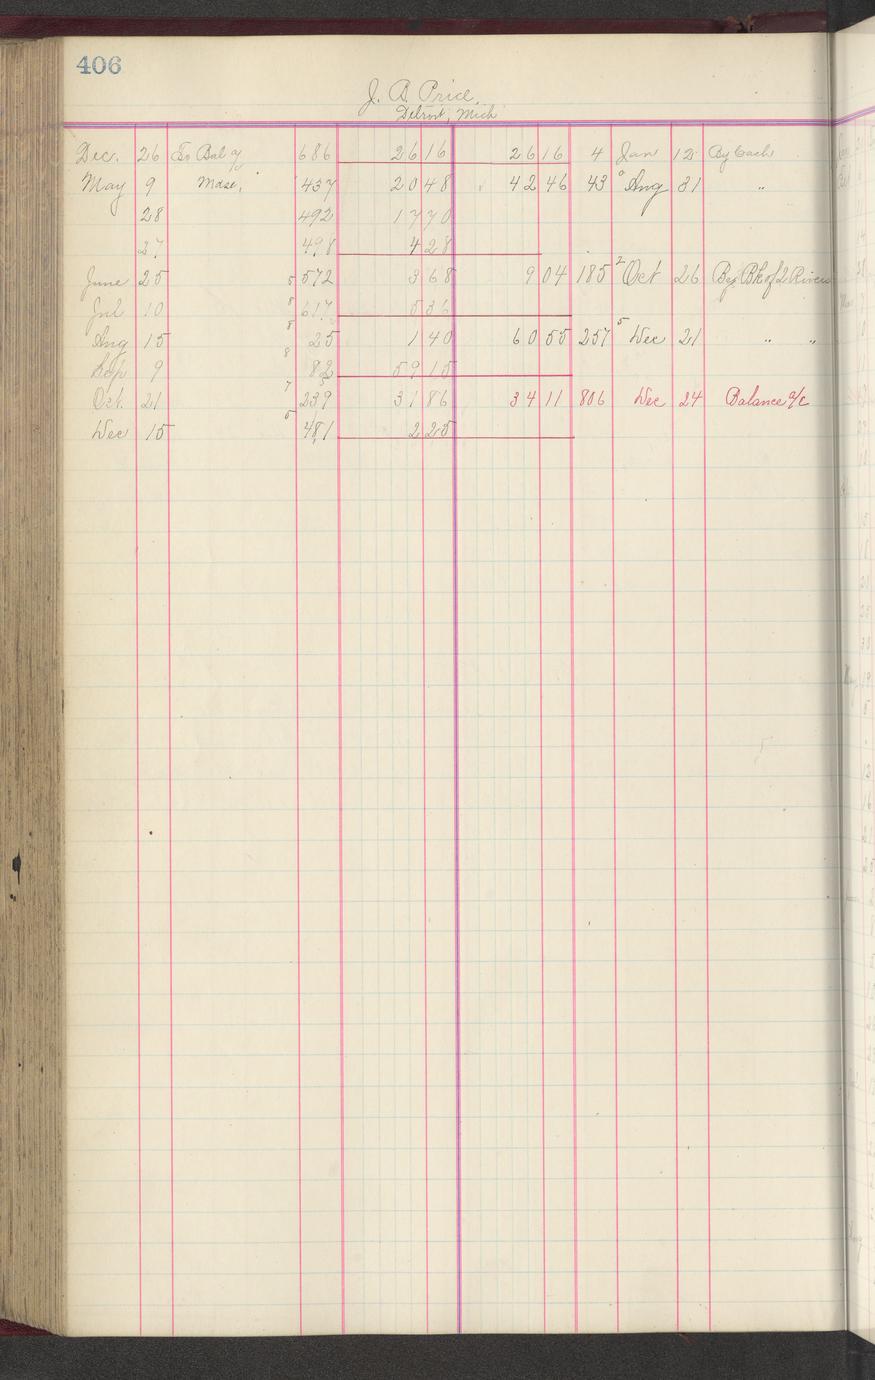 406
J. B. Price,
Detroit, Mich
Dec. 26 To Bal of 686 26 16 26 16 4 Jan 12 By Cash
May 9 Mdse, " 437 20 48 42 46 43 0 Aug 31 "
28 492 17 70
27 498 4 28
June 25 5 572 3 68 9 04 185 2 Oct 26 By Bk of 2 Rivers
Jul 10 8 617 5 36
Aug 15 8 25 1 40 60 55 257 5 Dec 21 " "
Sep 9 8 82 59 15
Oct. 21 7 239 31 86 34 11 806 Dec 24 Balance a/c
Dec 15 5 481 2 25